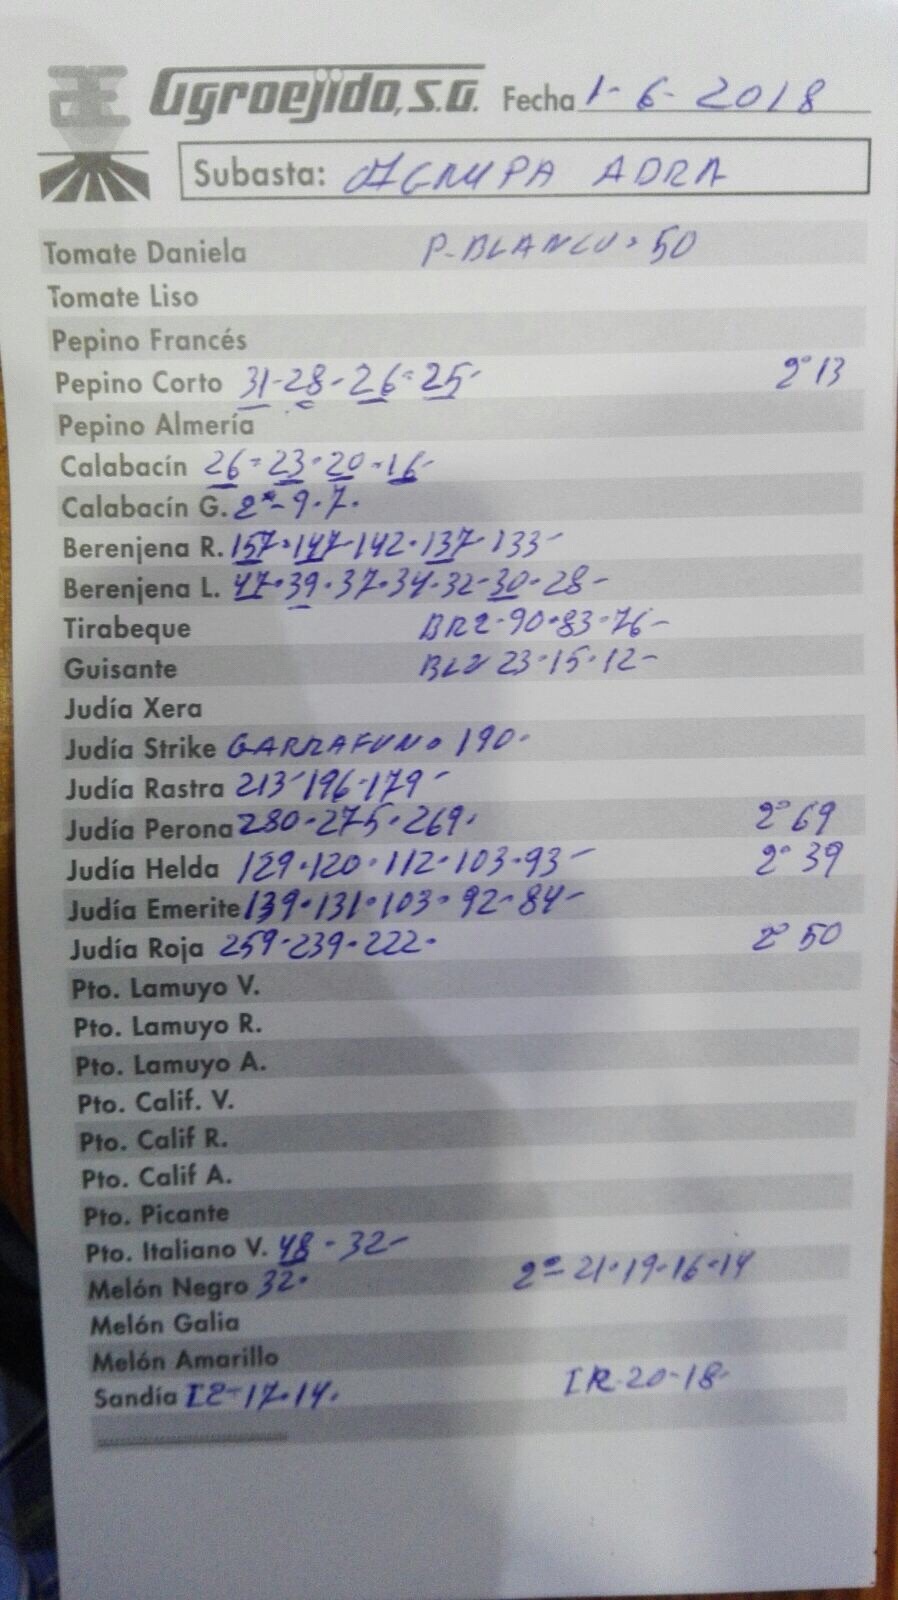 Agroejido, S.A. Fecha 1-6-2018
Subasta: AGRUPA ADRA
Tomate Daniela P-BLANCO. 50
Tomate Liso
Pepino Francés
Pepino Corto 31-28-26-25- 2ª 13
Pepino Almería
Calabacín 26-23-20-16-
Calabacín G. 2ª-9-7.
Berenjena R. 157-147-142-137-133-
Berenjena L. 47-39-37-34-32-30-28-
Tirabeque BR2-90-83-76-
Guisante BL2 23-15-12-
Judía Xera
Judía Strike GARRAFUNO 190-
Judía Rastra 213-196-179-
Judía Perona 280-275-269. 2ª 69
Judía Helda 129-120-112-103-93- 2ª 39
Judía Emerite 139-131-103-92-84-
Judía Roja 259-239-222- 2ª 50
Pto. Lamuyo V.
Pto. Lamuyo R.
Pto. Lamuyo A.
Pto. Calif. V.
Pto. Calif R.
Pto. Calif A.
Pto. Picante
Pto. Italiano V. 48-32-
Melón Negro 32. 2ª-21-19-16-14
Melón Galia
Melón Amarillo
Sandía I2-17-14. IR-20-18-